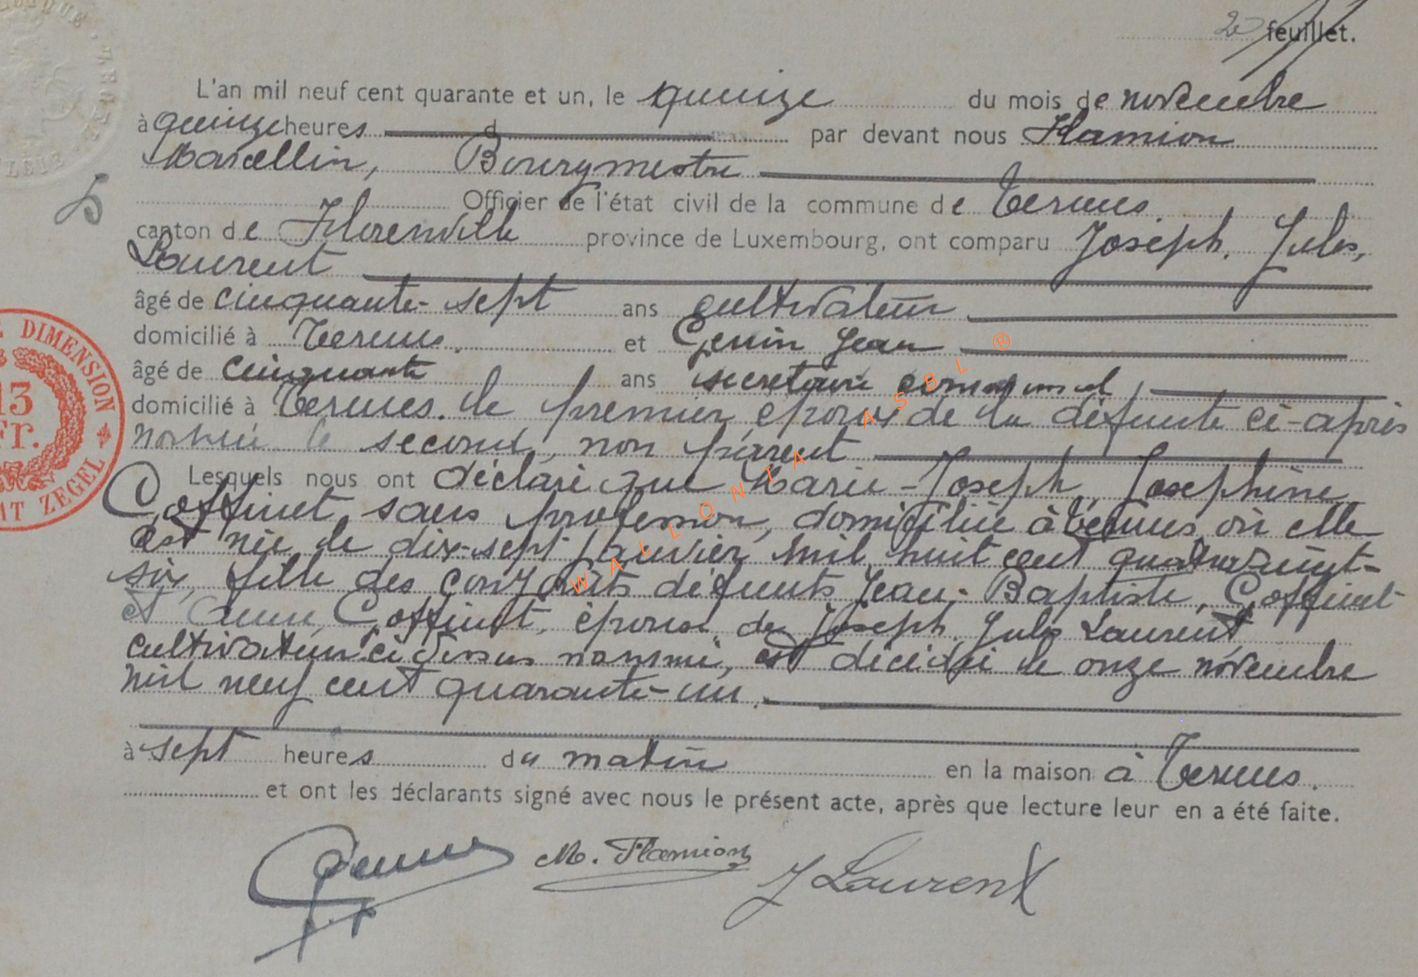 2e feuillet.
L'an mil neuf cent quarante et un, le quinze du mois de novembre
à quinze heures d par devant nous Flamion
Marcellin, Bourgmestre
Officier de l'état civil de la commune de Termes.
canton de Florenville province de Luxembourg, ont comparu Joseph, Jules,
Laurent
âgé de cinquante-sept ans cultivateur
domicilié à Termes. et Genin Jean
âgé de cinquante ans secrétaire communal,
domicilié à Termes. le premier, époux de la défunte ci-après
nommée le second, non parent
Lesquels nous ont déclaré que Marie-Joseph, Josephine,
Goffinet sans profession, domiciliée à Termes, où elle
est née le dix-sept janvier mil huit cent quatre-vingt-
six, fille des conjoints défunts Jean-Baptiste, Goffinet
et Anne, Goffinet, épouse de Joseph, Jules Laurent,
cultivateur ci dessus nommé, est décédée le onze novembre
mil neuf cent quarante-un.
à sept heures du matin en la maison à Termes.
et ont les déclarants signé avec nous le présent acte, après que lecture leur en a été faite.
M. Flamion
J Laurent
DIMENSION
13
Fr.
ZEGEL
WALLONIA ASBL ®